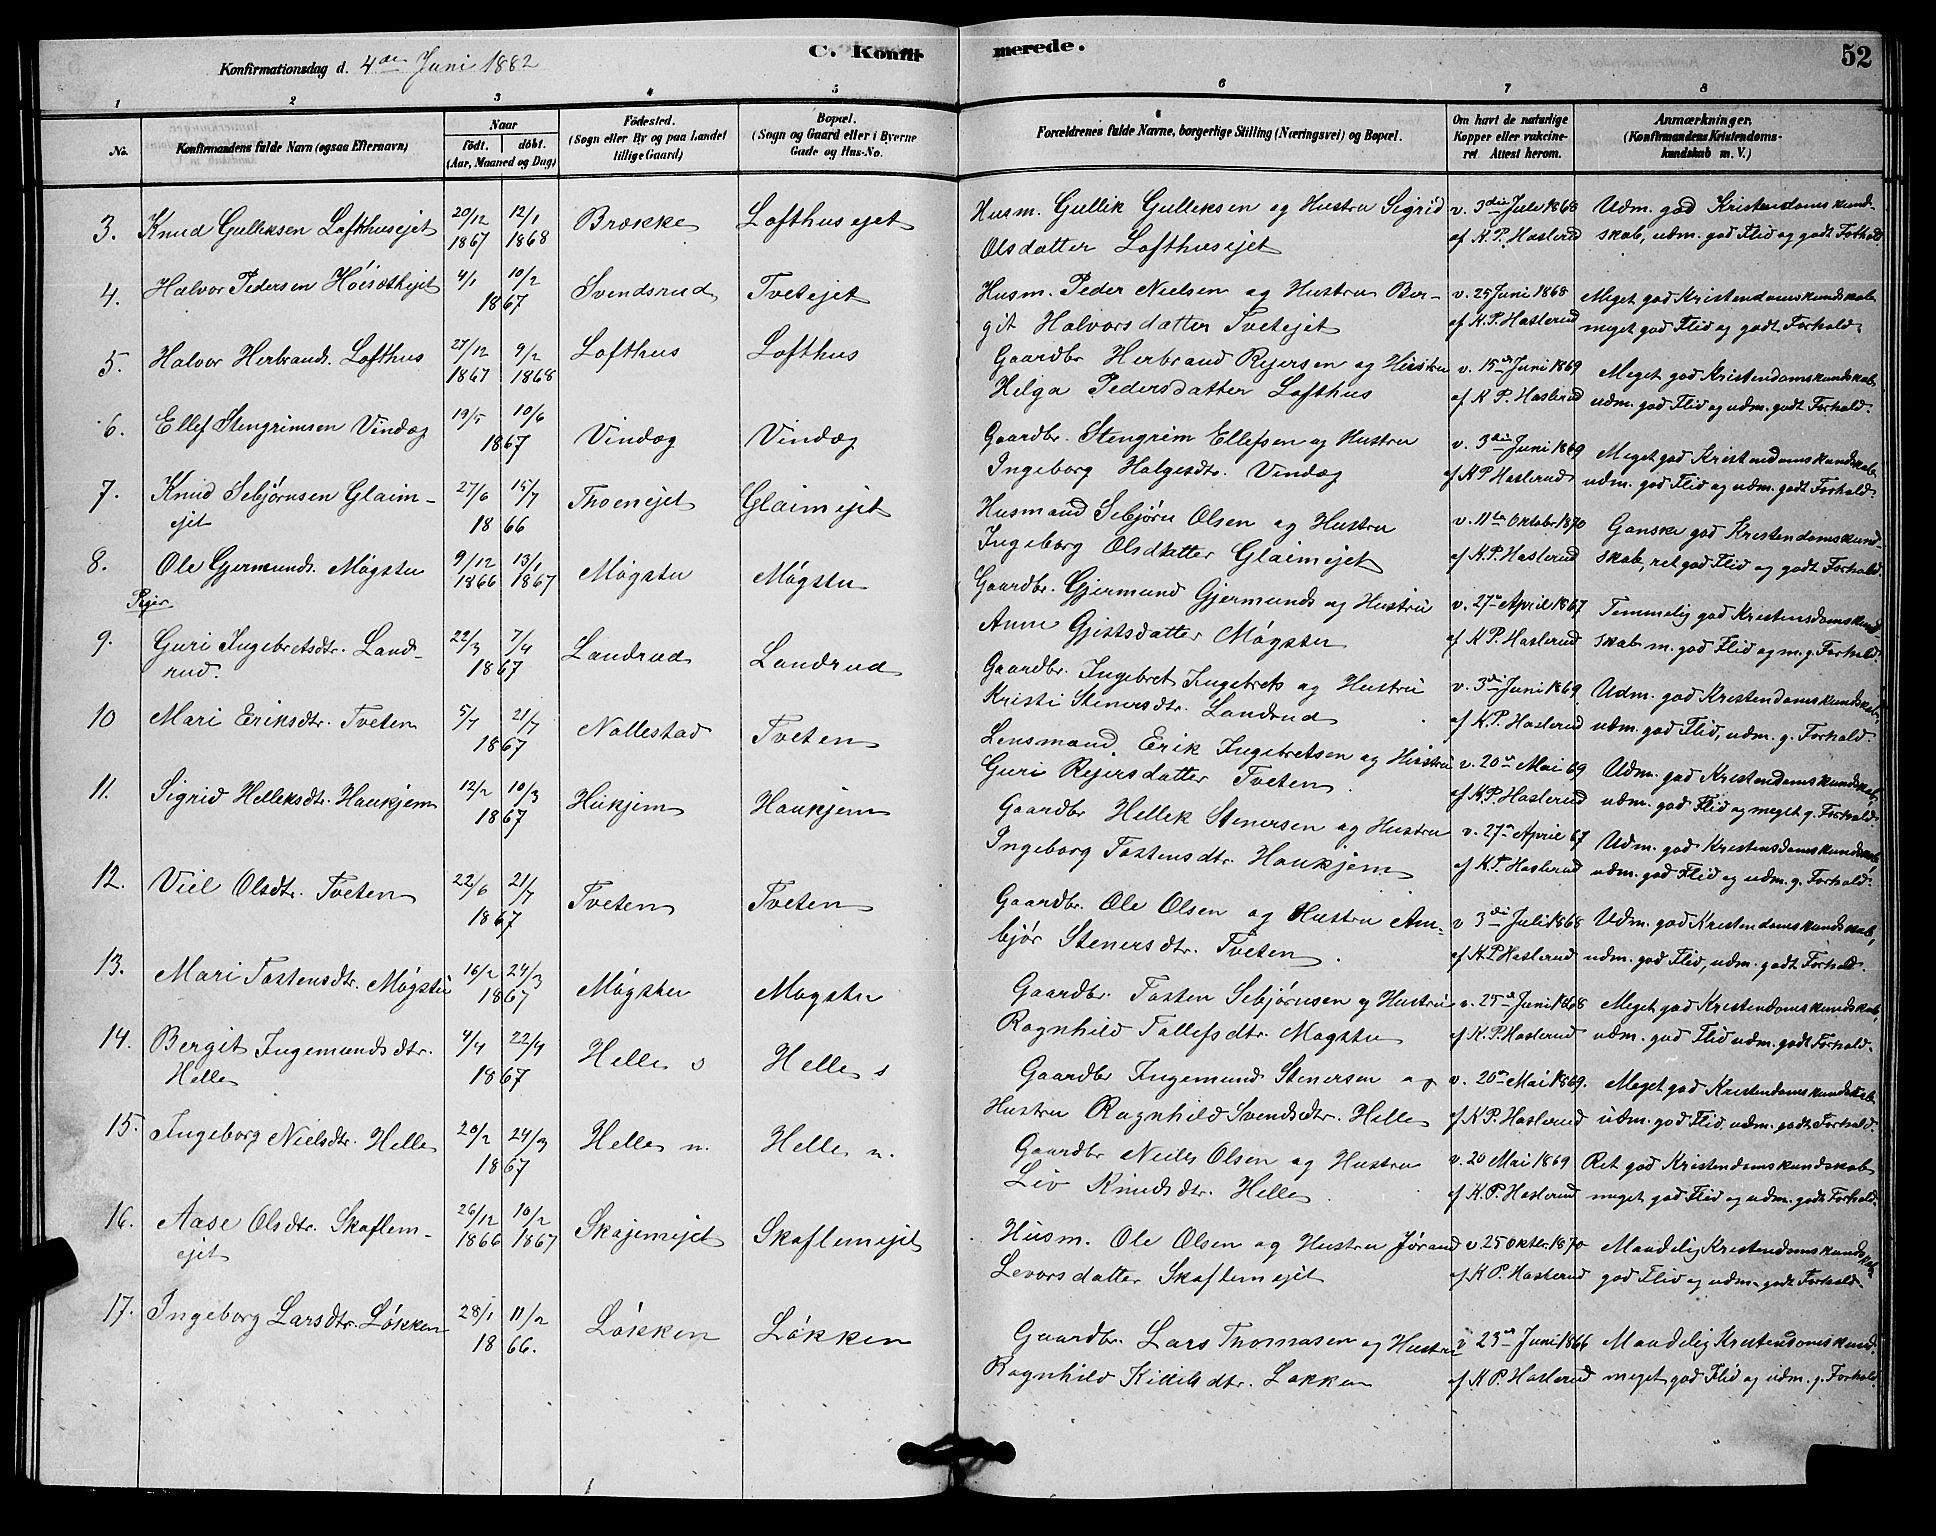 C. Konfirmerede.
52
Konfirmationsdag d. 4de Juni 1882
1 2 3 4 5 6 7 8
No.
Konfirmandens fulde Navn (ogsaa Efternavn)
Naar
födt. döbt.
(Aar, Maaned og Dag)
Födested.
(Sogn eller By og paa Landet
tillige Gaard)
Bopæl.
(Sogn og Gaard eller i Byerne
Gade og Hus-No.
Forældrenes fulde Navne, borgerlige Stilling (Næringsvei) og Bopæl.
Om havt de naturlige
Kopper eller vakcine-
ret Attest herom.
Anmærkninger.
(Konfirmandens Kristendoms-
kundskab m. V.)
3. Knud Gulleksen Lofthusejet 20/12 1867 12/1 1868 Brække Lofthusejet
Husm. Gullik Gulleksen og Hustru Sigrid
Olsdatter Lofthusejet
v. 3die Juli 1868
af K. P. Haslerud
Udm. god Kristendomskund-
skab, udm. god Flid og godt Forhold
4. Halvor Pedersen Höisætejet 4/1 10/2 1867 Svendsrud Tvetejet
Husm. Peder Nielsen og Hustru Ber-
git Halvorsdatter Tvetejet
v. 25 Juni 1868
af K. P. Haslerud
Meget god Kristendomskundskab
meget god Flid og godt Forhold.
5. Halvor Herbrands. Lofthus 27/12 1867 9/2 1868 Lofthus Lofthus
Gaardbr. Herbrand Rejersen og Hustru
Helga Pedersdatter Lofthus
v. 15de Juni 1869
af K. P. Haslerud
Meget god Kristendomskundskab
udm. god Flid og udm. godt Forhold.
6. Ellef Stengrimsen Vindæg 19/5 10/6 1867 Vindæg Vindæg
Gaardbr. Stengrim Ellefsen og Hustru
Ingeborg Holgesdtr. Vindæg
v. 3die Juni 1869
af K P Haslerud
Meget god Kristendomskundskab
udm. god Flid og udm. godt Forhold
7. Knud Sebjørnsen Glaim-
ejet 27/6 15/7 1866 Thoenejet Glaimejet
Husmand Sebjørn Olsen og Hustru
Ingeborg Olsdatter Glaimejet
v. 11te Oktober 1870
af K. P. Haslerud
Ganske god Kristendomskund-
skab, ret god Flid og godt Forhold.
8. Ole Gjermunds. Møgster 9/12 1866 13/1 1867 Møgster Møgster
Gaardbr. Gjermund Gjermunds og Hustru
Anne Gjestsdatter Møgster
v. 27de April 1867
af K. P. Haslerud
Temmelig god Kristendomskund-
skab m. god Flid og m. g. Forhold.
Piger
9. Guri Ingebretsdtr. Land-
rud. 22/3 7/4 1867 Landrud Landrud
Gaardbr. Ingebret Ingebrets og Hustru
Kristi Stenersdtr. Landrud
v. 3die Juni 1869
af K. P. Haslerud
Udm. god Kristendomskundskab,
udm. god Flid, udm. g. Forhold.
10 Mari Eriksdtr. Tveten 5/7 21/7 1867 Nøllestad Tveten
Lensmand Erik Ingebretsen og Hustru
Guri Rejersdatter Tveten.
v. 20de Mai 69
af K. P. Haslerud
Udm. god Kristendomskundskab,
udm. god Flid og meget g. Forhold.
11. Sigrid Helleksdtr. Haukjem 12/2 10/3 1867 Hukjem Haukjem
Gaardbr Hellek Stenersen og Hustru
Ingeborg Tostensdtr. Haukjem
v. 27de April 67
af K. P. Haslerud
Udm. god Kristendomskundskab,
udm. god Flid og udm. g. Forhold.
12. Viel Olsdtr. Tveten 22/6 21/7 1867 Tveten Tveten
Gaardbr. Ole Olsen og Hustru Am-
bjør Stenersdtr. Tveten.
v 3die Juli 1868
af K. P. Haslerud
Udm. god Kristendomskundskab,
udm. god Flid, udm. godt Forhold.
13. Mari Tostensdtr. Møgster 16/2 24/3 1867 Møgster Møgster
Gaardbr. Tosten Sebjørnsen g Hustru
Ragnhild Tollefsdtr. Møgster
v. 25de Juni 1868
af K. P. Haslerud
Meget god Kristendomskundskab,
udm. god Flid udm. godt Forhold.
14. Bergit Ingemundsdtr.
Helle 4/4 22/4 1867 Helle s Helle s
Gaardbr Ingemund Stenersen og
Hustru Ragnhild Svendsdtr. Helle
v. 20de Mai 1869.
af K. P. Haslerud
Meget god Kristendomskundskab
udm. god Flid, udm. godt Forhold.
15. Ingeborg Nielsdtr. Helle 20/2 24/3 1867 Helle n. Helle n.
Gaardbr Neils Olsen og Hustru
Liv Knudsdtr. Helle.
v. 20 Mai 1869
af K. P. Haslerud
Ret god Kristendomskundskab
meget god Flid og udm. godt Forhold.
16. Aase Olsdtr. Skaflem-
ejet 26/12 1866 10/2 1867 Skajemejet Skaflemejet
Husm. Ole Olsen og Hustru Jørand
Levorsdatter Skaflemejet
v. 25 Oktbr. 1870
af K. P. Haslerud
Maadelig Kristendomskundskab
god Flid og udm. godt Forhold.
17. Ingeborg Larsdtr. Løkken 28/1 11/2 1866. Løkken Løkken
Gaardbr. Lars Thomasen og Hustru
Ragnhild Kittilsdtr. Løkken
v 23de Juni 1866
af K. P. Haslerud
Maadelig Kristendomskund-
meget god Flid og udm. g. Forhold.